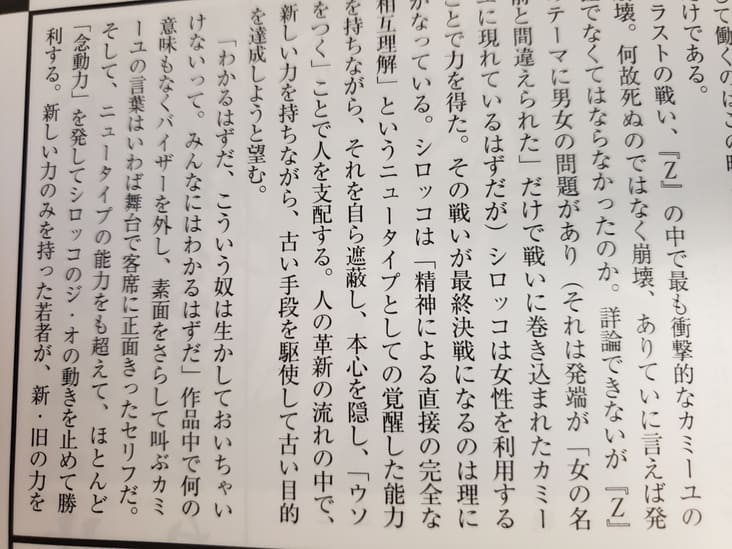 して働くのはこの
けである。
ラストの戦い、『Z』の中で最も衝撃的なカミーユの
崩壊。何故死ぬのではなく崩壊、ありていに言えば発
でなくてはならなかったのか。詳論できないが『Z』
のテーマに男女の問題があり（それは発端が「女の名
前と間違えられた」だけで戦いに巻き込まれたカミー
に現れているはずだが）シロッコは女性を利用する
ことで力を得た。その戦いが最終決戦になるのは理に
かなっている。シロッコは「精神による直接の完全な
相互理解」というニュータイプとしての覚醒した能力
を持ちながら、それを自ら遮蔽し、本心を隠し、「ウソ
をつく」ことで人を支配する。人の革新の流れの中で、
新しい力を持ちながら、古い手段を駆使して古い目的
を達成しようと望む。
「わかるはずだ、こういう奴は生かしておいちゃい
けないって。みんなにはわかるはずだ」作品中で何の
意味もなくバイザーを外し、素面をさらして叫ぶカミ
ーユの言葉はいわば舞台で客席に正面きったセリフだ。
そして、ニュータイプの能力をも超えて、ほとんど
「念動力」を発してシロッコのジ・オの動きを止めて勝
利する。新しい力のみを持った若者が、新・旧の力を